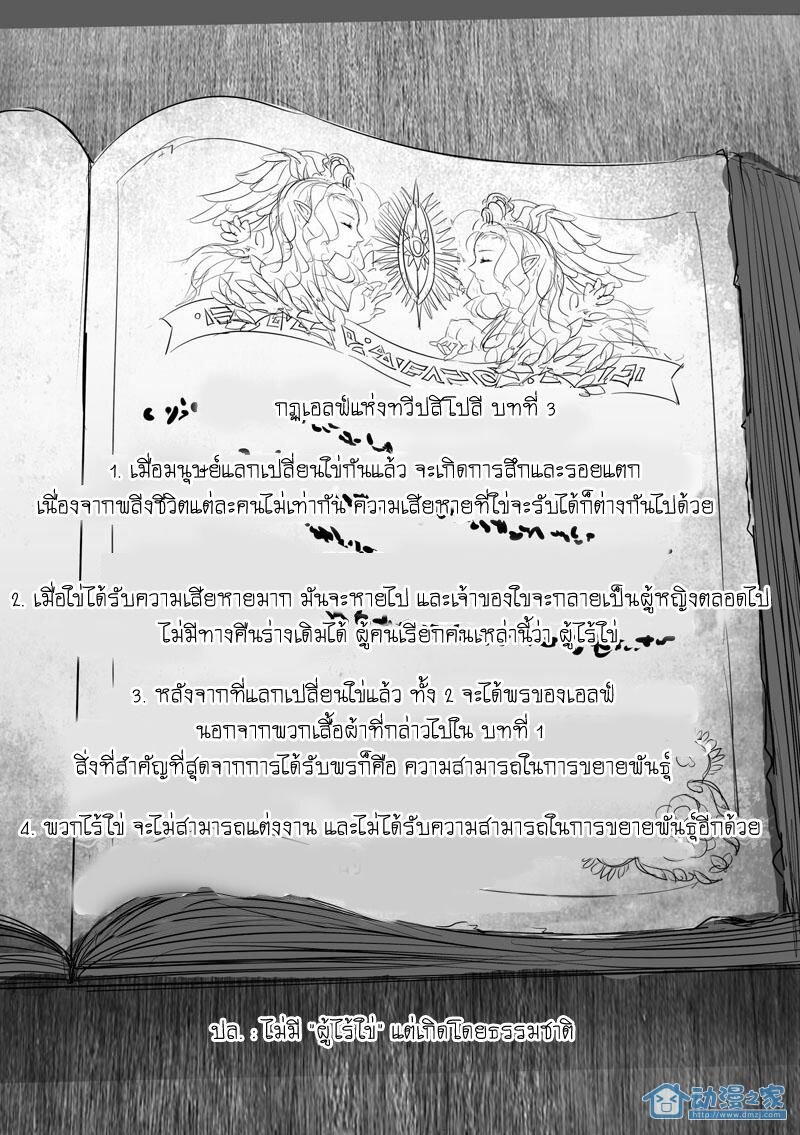 กฎเอลฟ์แห่งทวีปสีโปสี บทที่ 3
1. เมื่อมนุษย์แลกเปลี่ยนไข่กันแล้ว จะเกิดการสึกและรอยแตก
เนื่องจากพลังชีวิตแต่ละคนไม่เท่ากัน ความเสียหายที่ไข่จะรับได้ก็ต่างกันไปด้วย
2. เมื่อไข่ได้รับความเสียหายมาก มันจะหายไป และเจ้าของไข่จะกลายเป็นผู้หญิงตลอดไป
ไม่มีทางคืนร่างเดิมได้ ผู้คนเรียกคนเหล่านี้ว่า ผู้ไร้ไข่
3. หลังจากที่แลกเปลี่ยนไข่แล้ว ทั้ง 2 จะได้พรของเอลฟ์
นอกจากพวกเสื้อผ้าที่กล่าวไปใน บทที่ 1
สิ่งที่สำคัญที่สุดจากการได้รับพรก็คือ ความสามารถในการขยายพันธุ์
4. พวกไร้ไข่ จะไม่สามารถแต่งงาน และไม่ได้รับความสามารถในการขยายพันธุ์อีกด้วย
ปล. : ไม่มี "ผู้ไร้ไข่" แต่เกิดโดยธรรมชาติ
动漫之家
http://www.dmzj.com